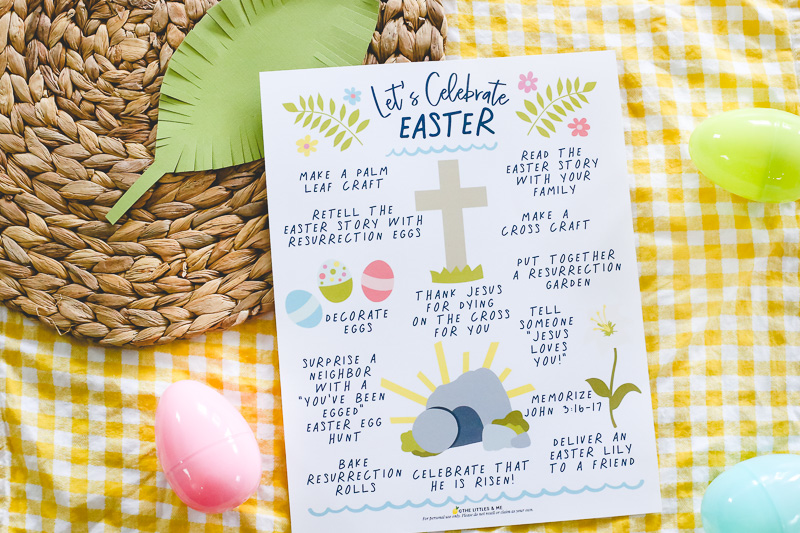 Let's Celebrate
EASTER
MAKE A PALM
LEAF CRAFT
READ THE
EASTER STORY
WITH YOUR
FAMILY
RETELL THE
EASTER STORY WITH
RESURRECTION EGGS
MAKE A
CROSS CRAFT
PUT TOGETHER
A RESURRECTION
GARDEN
DECORATE
EGGS
THANK JESUS
FOR DYING
ON THE CROSS
FOR YOU
TELL
SOMEONE
"JESUS
LOVES
YOU!"
SURPRISE A
NEIGHBOR
WITH A
"YOU'VE BEEN
EGGED"
EASTER EGG
HUNT
MEMORIZE
JOHN 3:16-17
DELIVER AN
EASTER LILY
TO A FRIEND
BAKE
RESURRECTION
ROLLS
CELEBRATE THAT
HE IS RISEN!
©THE LITTLES & ME
For personal use only. Please do not resell or claim as your own.